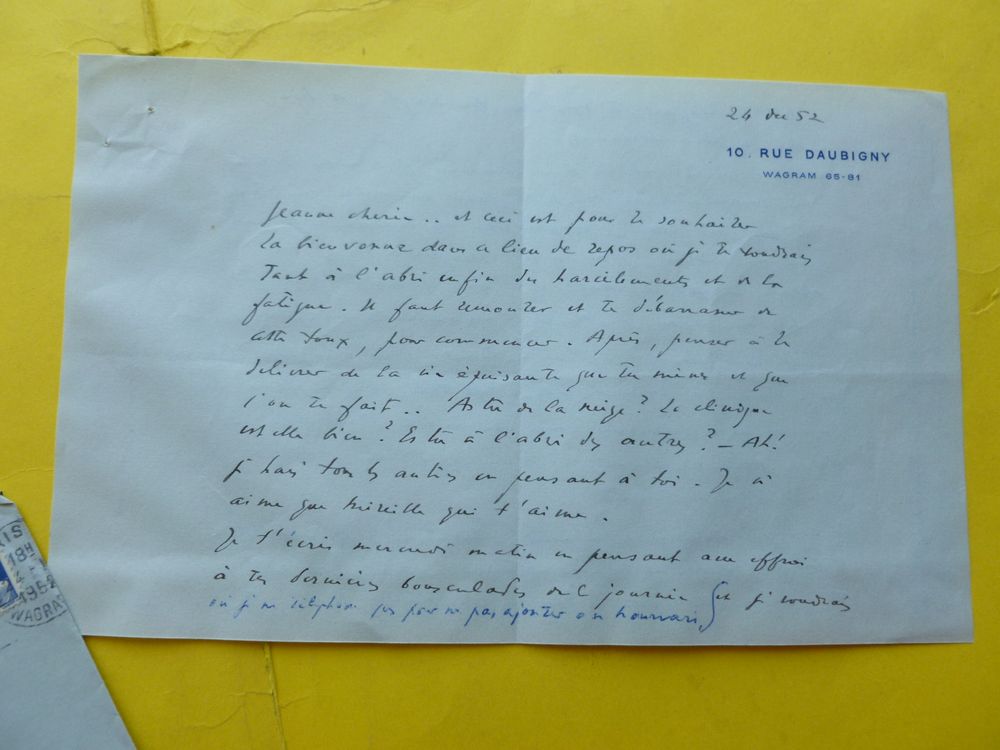 24 du 52
10. RUE DAUBIGNY
WAGRAM 65-81
Jeanne chérie.. et ceci est pour te souhaiter
la bienvenue dans ce lieu de repos où je te voudrais
tant à l'abri enfin des harcèlements et de la
fatigue. Il faut remonter et te débarrasser de
cette toux, pour commencer. Après, penser à te
délivrer de la vie épuisante que tu mènes et que
l'on te fait.. As tu de la neige? La clinique
est elle bien? Es tu à l'abri des autres? - Ah!
je hais tous les autres en pensant à toi. Je n'
aime que Mireille qui t'aime.
Je t'écris mercredi matin en pensant avec effroi
à tes dernières bousculades de la journée et je voudrais
où je ne téléphone pas pour ne pas ajouter au hourvari,
RIS
18H
4
1952
WAGRAM